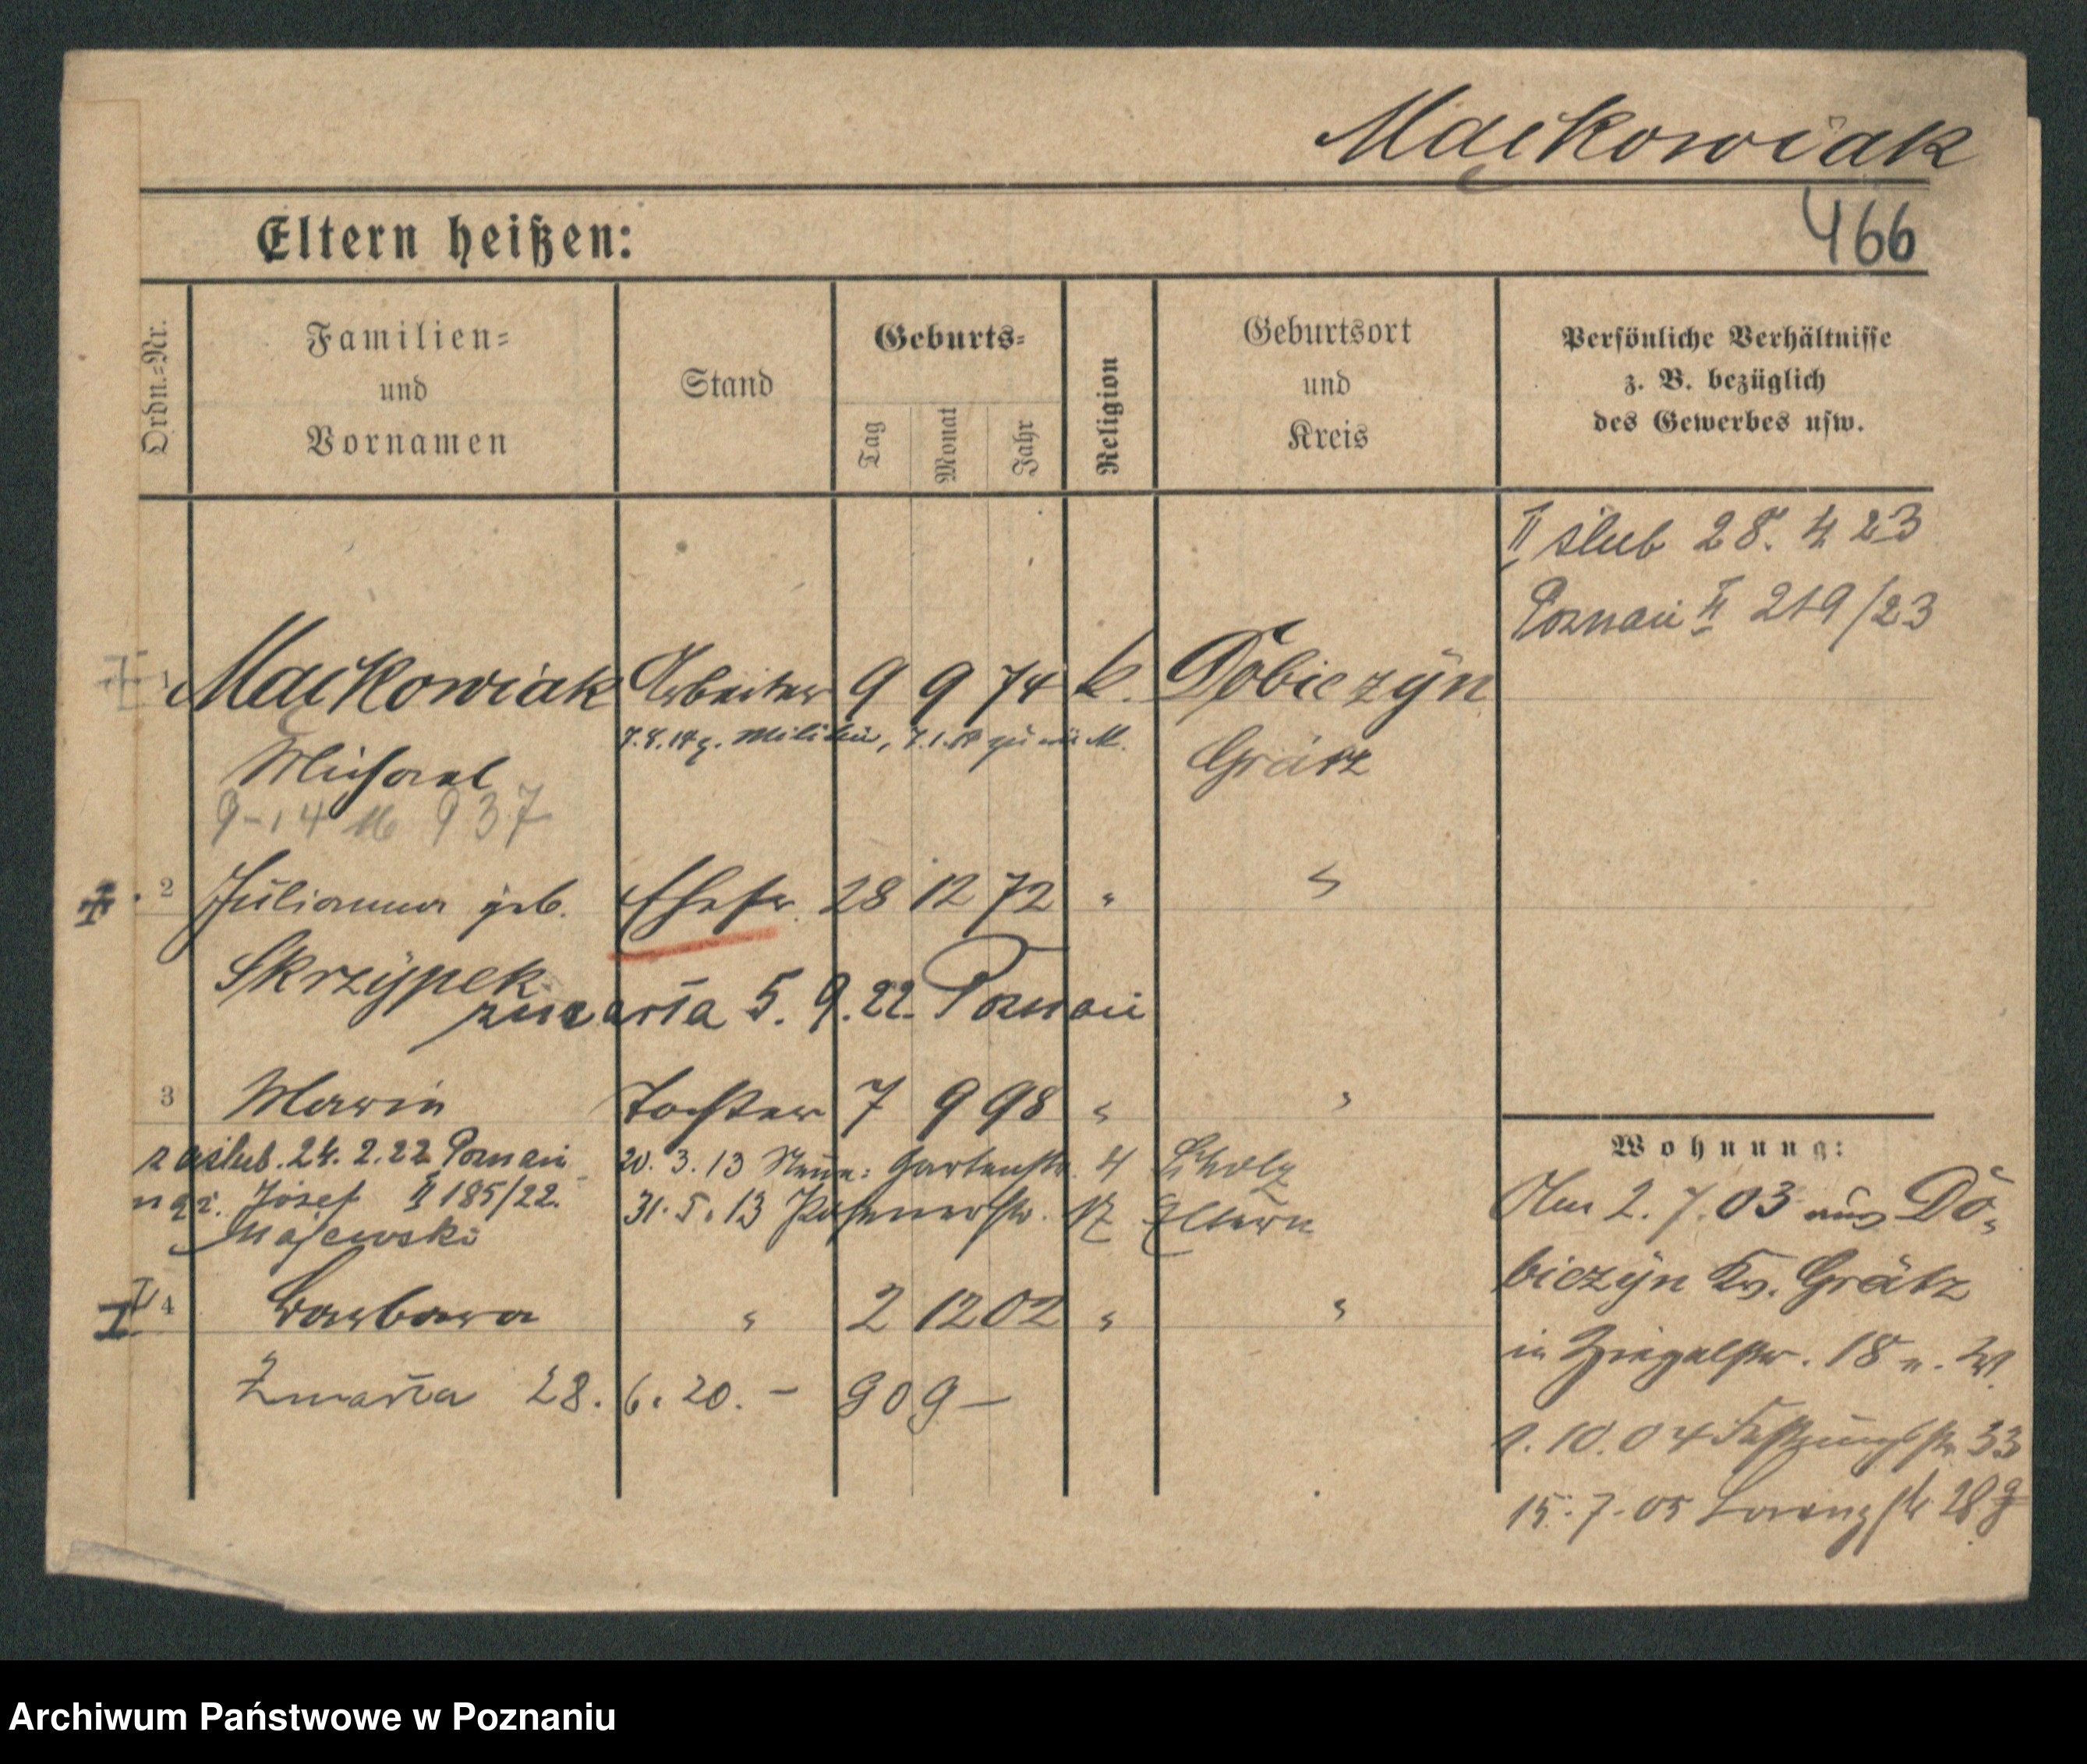 Mackowiak
Eltern heißen:
466
Ordn.-Nr.
Familien-
und
Vornamen
Stand
Geburts-
Tag
Monat
Jahr
Religion
Geburtsort
und
Kreis
Persönliche Verhältnisse
z. B. bezüglich
des Gewerbes usw.
II ślub 28. 4 23
Poznań II 219/23
1 Mackowiak Arbeiter 9 9 74 k. Dobieżyn
7.8.14 z. Militär, 7.1.
Michael Grätz
9-14 16 937
2 Julianna geb. Ehefr. 28 12 72 "
Skrzypek
zmarła 5. 9. 22. Poznań
3 Marie Tochter 7 9 98 "
zaślub. 24. 2. 22 Poznań 20. 3. 13 Neue Gartenstr. 4 Scholz
Józef II 185/22. 31. 5. 13 Posenerstr. 17 Eltern
Majewski
4 Barbara " 2 12 02 " "
Zmarła 28. 6. 20. - 909 -
Wohnung:
Am 2. 7. 03 aus Do-
bieżyn Kr. Grätz
in Ziegelstr. 18 n. W.
1. 10. 04 Festungsstr. 33
15. 7. 05 Lorenzstr. 28
Archiwum Państwowe w Poznaniu